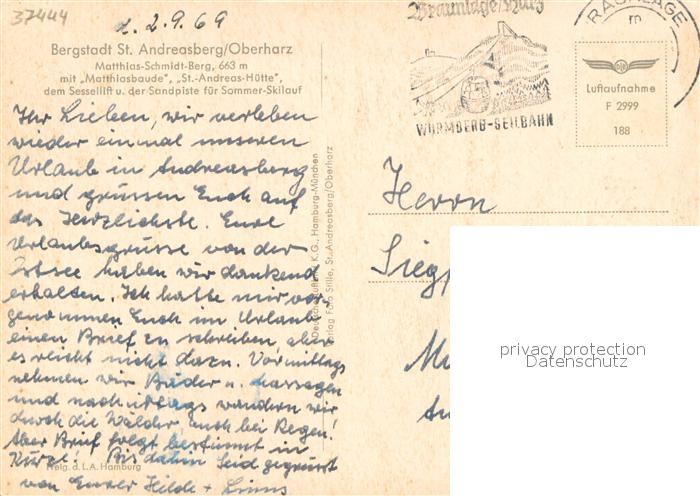 37444
d. 2.9.69
Bergstadt St. Andreasberg/Oberharz
Matthias-Schmidt-Berg, 663 m
mit „Matthiasbaude", „St.-Andreas-Hütte",
dem Sessellift u. der Sandpiste für Sommer-Skilauf
Ihr Lieben, wir verleben
wieder einmal unseren
Urlaub in Andreasberg
und grüssen Euch auf
das Herzlichste. Eure
Urlaubsgrüsse von der
Ostsee haben wir dankend
erhalten. Ich hatte mir vor-
genommen Euch im Urlaub
einen Brief zu schreiben aber
es reicht nicht dazu. Vormittags
nehmen wir Bäder u. Massagen
und nachmittags wandern wir
durch die Wälder auch bei Regen!
Aber Brief folgt bestimmt in
Kürze! Bis dahin seid gegrüsst
von Eurer Hilde +
Freig. d. L.A. Hamburg
K.G., Hamburg-München
Verlag Foto Stille, St. Andreasberg/Oberharz
Braunlage/Harz
WURMBERG-SEILBAHN
BRAUNLAGE
Luftaufnahme
F 2999
188
Herrn
Siegf
privacy protection
Datenschutz